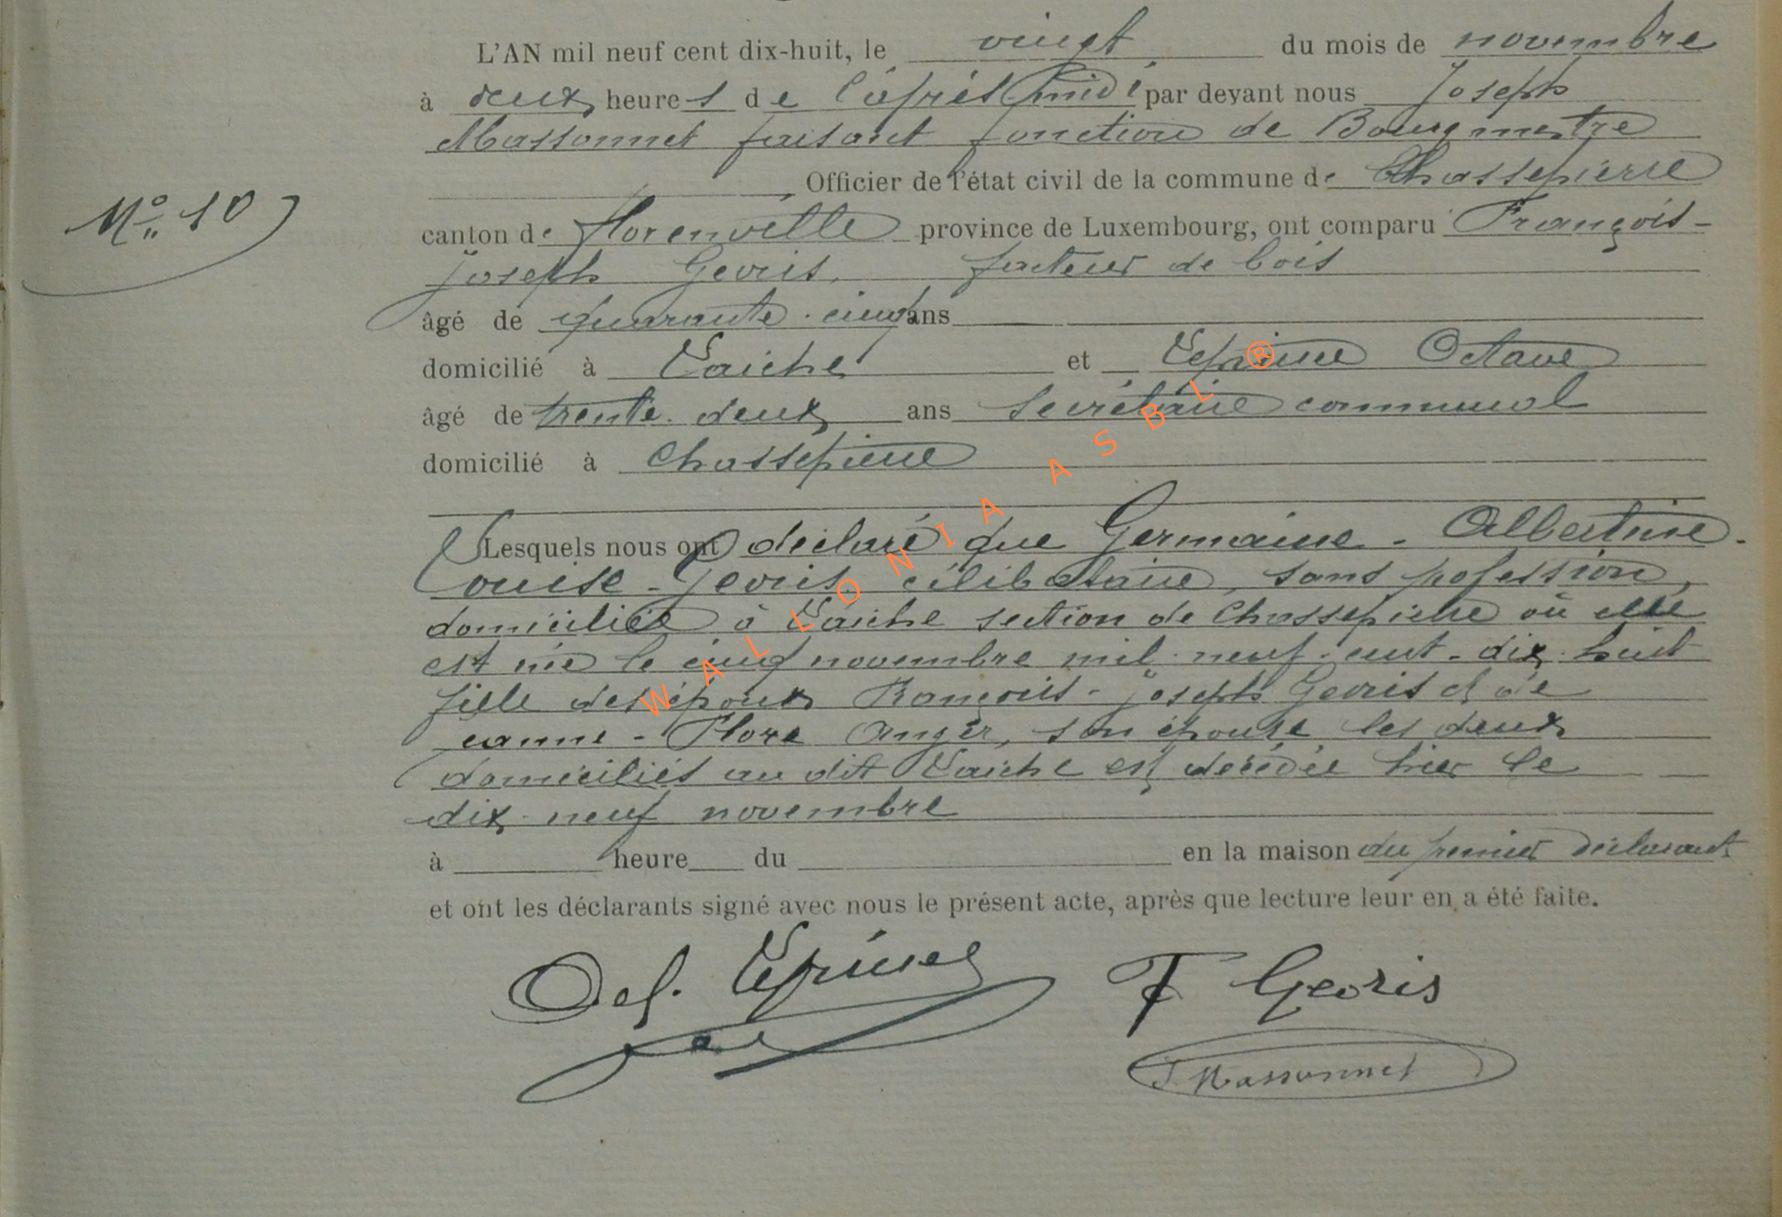 L'AN mil neuf cent dix-huit, le vingt du mois de novembre
à deux heures de l'après midi par devant nous Joseph
Massonnet faisant fonction de Bourgmestre
Officier de l'état civil de la commune de Chassepierre
No 10
canton de Florenville province de Luxembourg, ont comparu François-
Joseph Georis, facteur de bois
âgé de quarante-cinq ans
domicilié à Laiche et Lépine Octave
âgé de trente-deux ans secrétaire communal
domicilié à Chassepierre
Lesquels nous ont déclaré que Germaine-Albertine-
Louise-Georis, célibataire, sans profession,
domiciliée à Laiche section de Chassepierre où elle
est née le cinq novembre mil-neuf-cent-dix-huit
fille des époux François-Joseph Georis et de
Jeanne-Flore Anger, son épouse les deux
domiciliés au dit Laiche est décédée hier le
dix-neuf novembre
à heure du en la maison du premier déclarant
et ont les déclarants signé avec nous le présent acte, après que lecture leur en a été faite.
F Georis
J Massonnet
WALLONIA ASBL ®